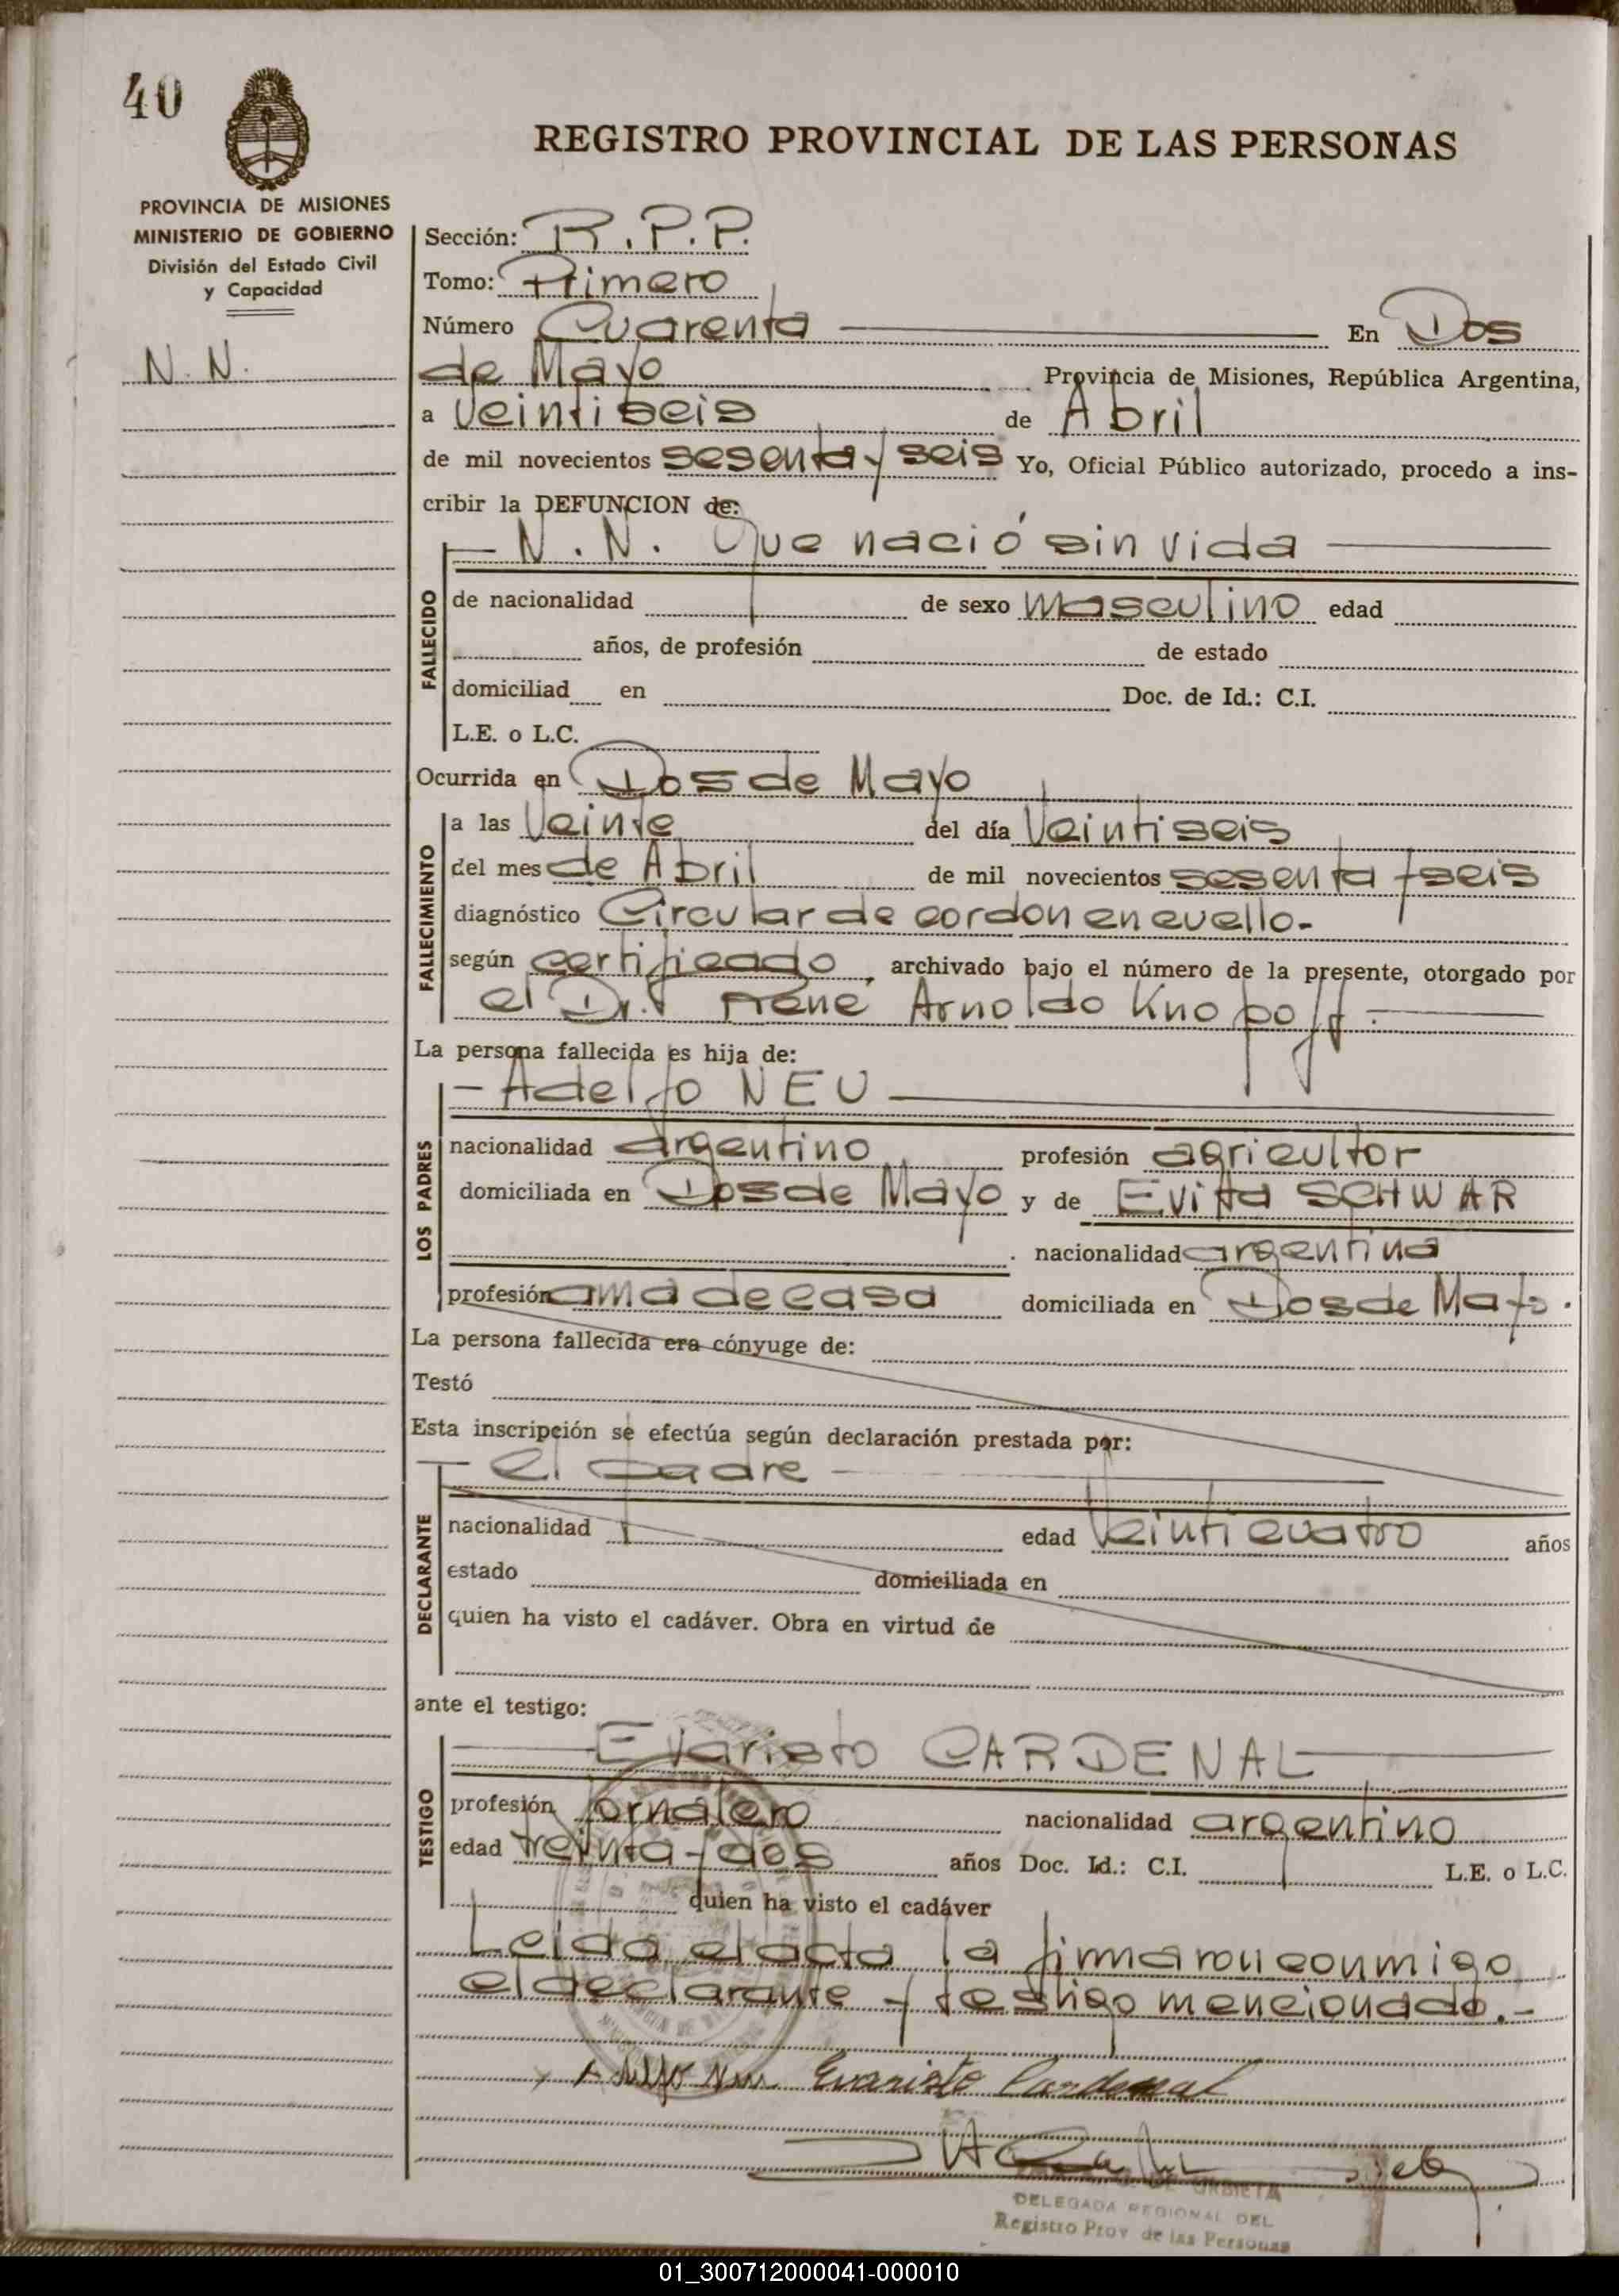 40
REGISTRO PROVINCIAL DE LAS PERSONAS
PROVINCIA DE MISIONES
MINISTERIO DE GOBIERNO
División del Estado Civil
y Capacidad
N. N.
Sección: R.P.P.
Tomo: Primero
Número Cuarenta En Dos
de Mayo Provincia de Misiones, República Argentina,
a Veintiseis de Abril
de mil novecientos sesenta y seis Yo, Oficial Público autorizado, procedo a ins-
cribir la DEFUNCION de:
N. N. Que nació sin vida
FALLECIDO
de nacionalidad de sexo Masculino edad
años, de profesión de estado
domiciliad en Doc. de Id.: C.I.
L.E. o L.C.
Ocurrida en Dos de Mayo
FALLECIMIENTO
a las Veinte del día Veintiseis
del mes de Abril de mil novecientos sesenta y seis
diagnóstico Circular de cordon en cuello.-
según certificado, archivado bajo el número de la presente, otorgado por
el Dr. Rene Arnoldo Knopoff.
La persona fallecida es hija de:
- Adelfo NEU
LOS PADRES
nacionalidad argentino profesión agricultor
domiciliada en Dos de Mayo y de Evita SCHWAR
. nacionalidad argentina
profesión ama de casa domiciliada en Dos de Mayo.
La persona fallecida era cónyuge de:
Testó
Esta inscripción se efectúa según declaración prestada por:
- el padre
DECLARANTE
nacionalidad edad Veinticuatro años
estado domiciliada en
quien ha visto el cadáver. Obra en virtud de
ante el testigo:
Evaristo CARDENAL
TESTIGO
profesión jornalero nacionalidad argentino
edad treinta y dos años Doc. Id.: C.I. L.E. o L.C.
quien ha visto el cadáver
Leida el acta la firmaron conmigo
el declarante y testigo mencionado.-
Adelfo Neu Evaristo Cardenal
DE URBIETA
DELEGADA REGIONAL DEL
Registro Prov. de las Personas
01_300712000041-000010